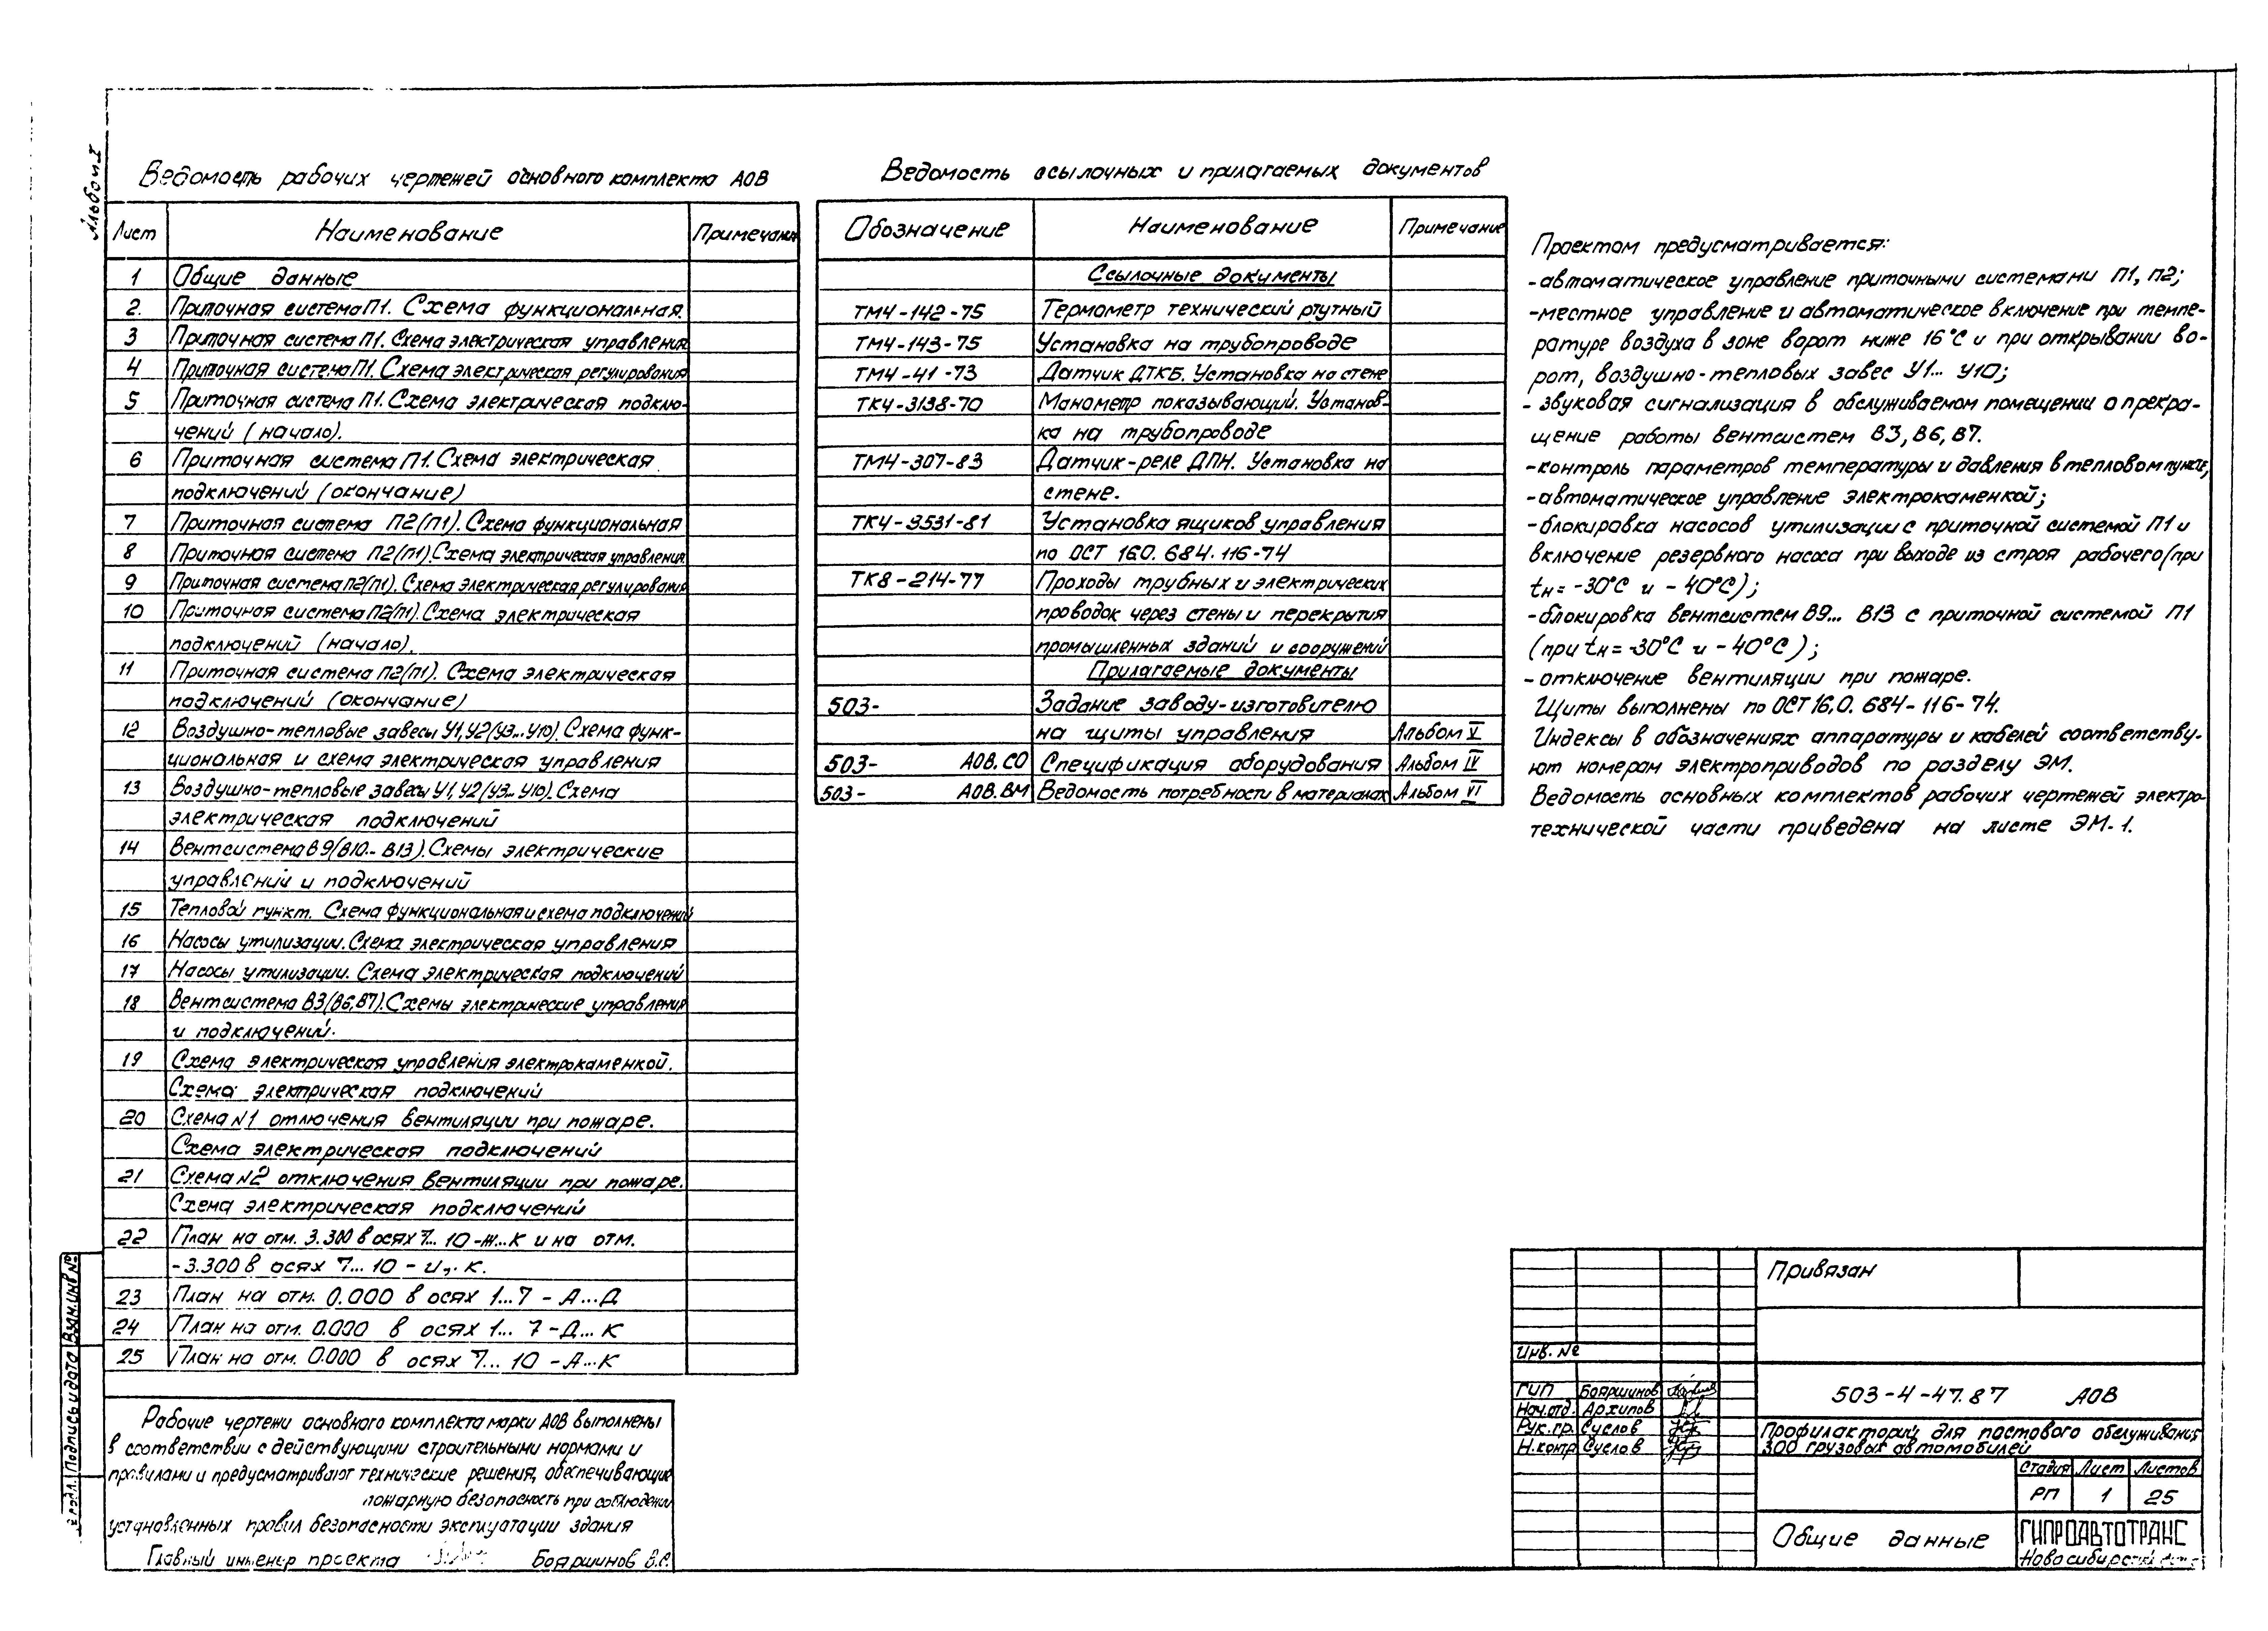 Альбом I
Ведомость рабочих чертежей основного комплекта АОВ
Лист Наименование Примечания
1 Общие данные
2. Приточная система П1. Схема функциональная.
3 Приточная система П1. Схема электрическая управления
4 Приточная система П1. Схема электрическая регулирования
5 Приточная система П1. Схема электрическая подклю-
чений (начало).
6 Приточная система П1. Схема электрическая
подключений (окончание)
7 Приточная система П2(П1). Схема функциональная
8 Приточная система П2(П1). Схема электрическая управления
9 Приточная система П2(П1). Схема электрическая регулирования
10 Приточная система П2(П1). Схема электрическая
подключений (начало).
11 Приточная система П2(П1). Схема электрическая
подключений (окончание)
12 Воздушно-тепловые завесы У1,У2(У3...У10). Схема функ-
циональная и схема электрическая управления
13 Воздушно-тепловые завесы У1,У2(У3...У10). Схема
электрическая подключений
14 Вентсистема В9(В10...В13). Схемы электрические
управлений и подключений
15 Тепловой пункт. Схема функциональная и схема подключений
16 Насосы утилизации. Схема электрическая управления
17 Насосы утилизации. Схема электрическая подключений
18 Вентсистема В3(В6,В7). Схемы электрические управления
и подключений.
19 Схема электрическая управления электрокаменкой.
Схема электрическая подключений
20 Схема N1 отлючения вентиляции при пожаре.
Схема электрическая подключений
21 Схема N2 отключения вентиляции при пожаре.
Схема электрическая подключений
22 План на отм. 3.300 в осях 7...10-Ж...К и на отм.
-3.300 в осях 7...10 - И,.К.
23 План на отм. 0.000 в осях 1...7 - А...Д
24 План на отм. 0.000 в осях 1...7 - Д...К
25 План на отм. 0.000 в осях 7...10 - А...К
Рабочие чертежи основного комплекта марки АОВ выполнены
в соответствии с действующими строительными нормами и
правилами и предусматривают технические решения, обеспечивающие
пожарную безопасность при соблюдении
установленных правил безопасности эксплуатации здания
Главный инженер проекта Бояршинов В.С.
Ведомость ссылочных и прилагаемых документов
Обозначение Наименование Примечание
Ссылочные документы
ТМ4-142-75 Термометр технический ртутный
ТМ4-143-75 Установка на трубопроводе
ТМ4-41-73 Датчик ДТКБ. Установка на стене
ТК4-3138-70 Манометр показывающий. Установ-
ка на трубопроводе
ТМ4-307-83 Датчик-реле ДПН. Установка на
стене.
ТК4-3531-81 Установка ящиков управления
по ОСТ 160.684.116-74
ТК8-214-77 Проходы трубных и электрических
проводок через стены и перекрытия
промышленных зданий и сооружений
Прилагаемые документы
503- Задание заводу-изготовителю
на щиты управления Альбом V
503- АОВ.СО Спецификация оборудования Альбом IV
503- АОВ.ВМ Ведомость потребности в материалах Альбом VI
Проектом предусматривается:
-автоматическое управление приточными системами П1, П2;
-местное управление и автоматическое включение при темпе-
ратуре воздуха в зоне ворот ниже 16°С и при открывании во-
рот, воздушно-тепловых завес У1... У10;
- звуковая сигнализация в обслуживаемом помещении о прекра-
щение работы вентсистем В3, В6, В7.
-контроль параметров температуры и давления в тепловом пункте;
-автоматическое управление электрокаменкой;
-блокировка насосов утилизации с приточной системой П1 и
включение резервного насоса при выходе из строя рабочего (при
tн = -30°С и -40°С);
-блокировка вентсистем В9... В13 с приточной системой П1
(при tн = -30°С и -40°С);
- отключение вентиляции при пожаре.
Щиты выполнены по ОСТ 16.0.684-116-74.
Индексы в обозначениях аппаратуры и кабелей соответству-
ют номерам электроприводов по разделу ЭМ.
Ведомость основных комплектов рабочих чертежей электро-
технической части приведена на листе ЭМ-1.
Привязан
Инв. №
ГИП Бояршинов
Нач.отд. Архипов
Рук.гр. Суслов
Н.контр Суслов
503-4-47.87 АОВ
Профилакторий для постового обслуживания
300 грузовых автомобилей
Стадия Лист Листов
РП 1 25
Общие данные
ГИПРОАВТОТРАНС
Новосибирский
Взам.инв №
Подпись и дата
подл.